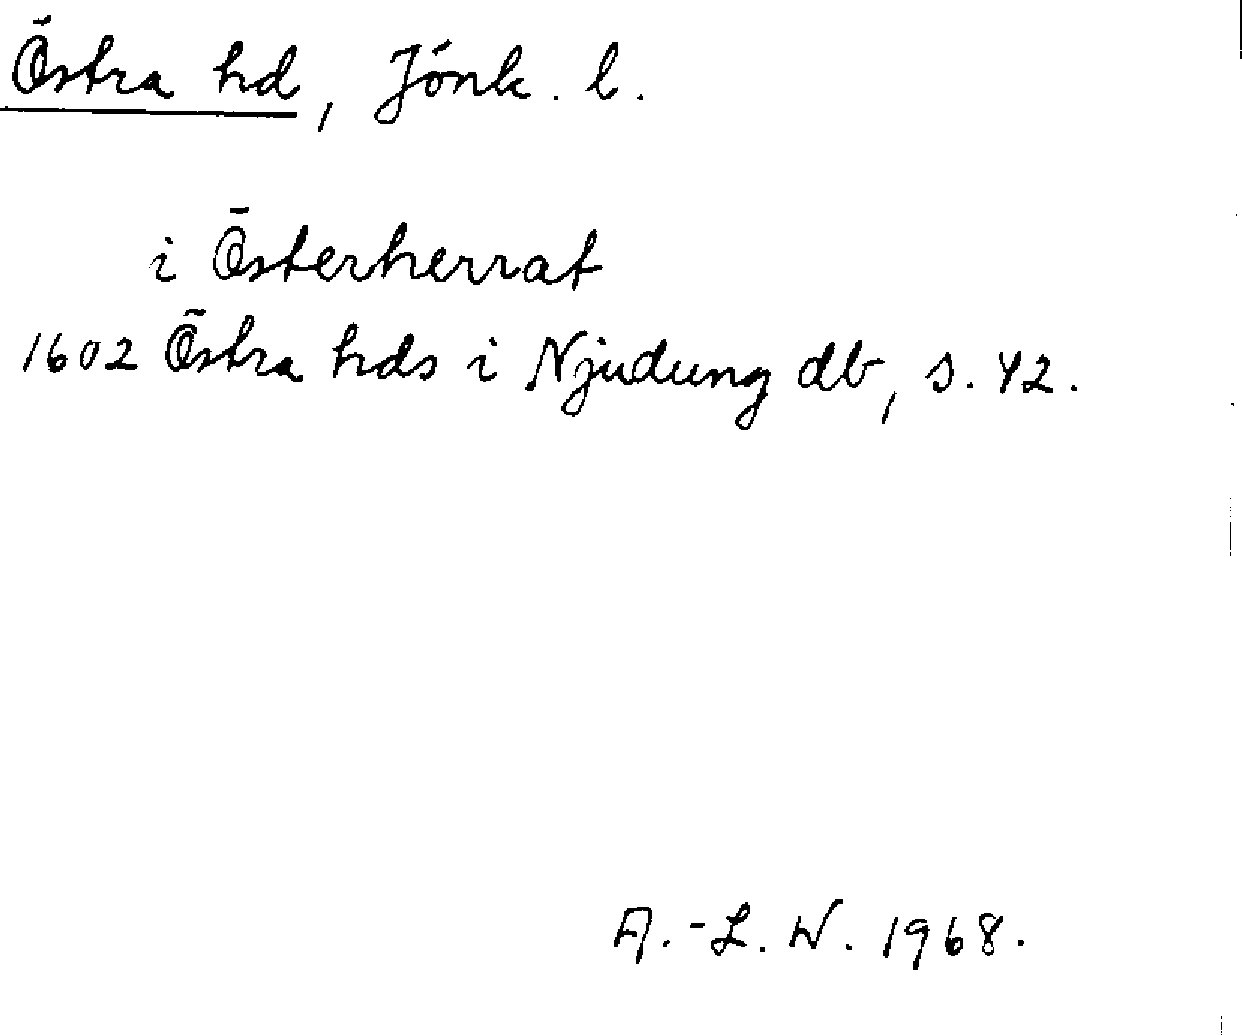 Östra hd, Jönk. l.
i Österherrat
1602 Östra hds i Njudung db, s. 42.
A.-L. W. 1968.